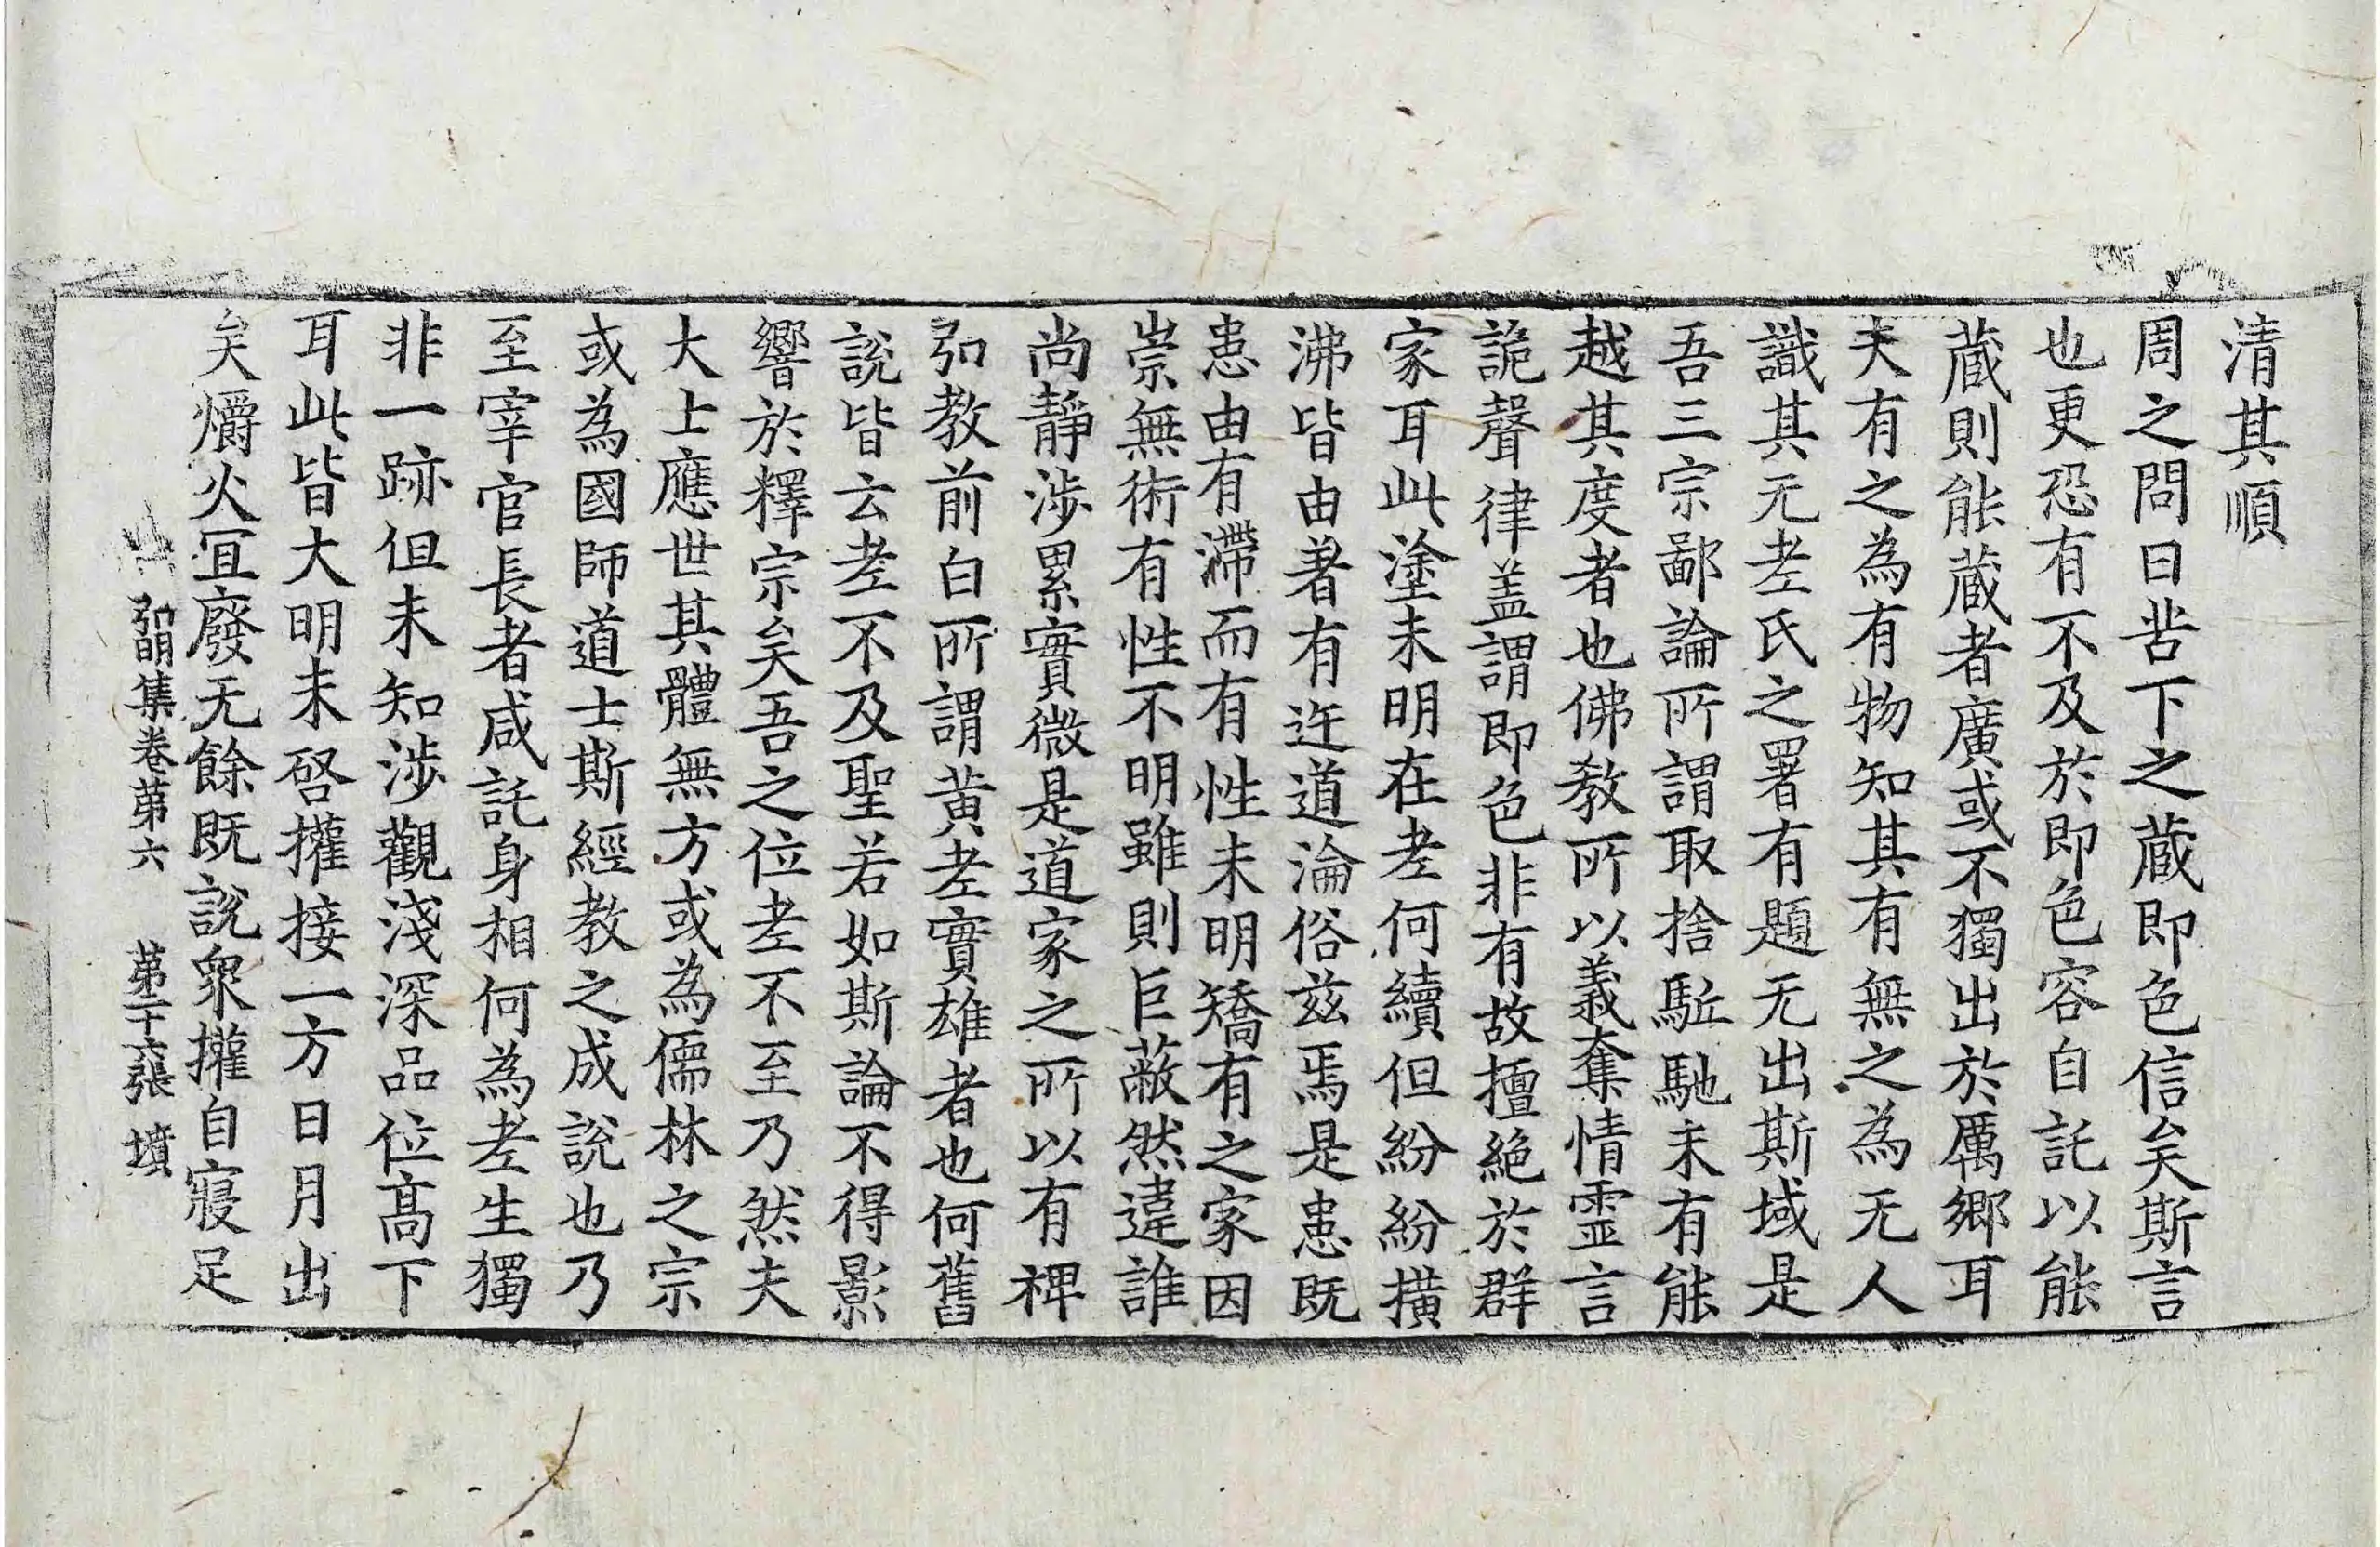 清其順
周之問曰苦下之蔵即色信矣斯言
也更恐有不及於即色容自託以能
蔵則能蔵者廣或不獨出於厲郷耳
夫有之為有物知其有無之為无人
識其无老氏之署有題无出斯域是
吾三宗鄙論所謂取捨駈馳未有能
越其度者也佛教所以義奪情靈言
詭聲律盖謂即色非有故擅絶於群
家耳此塗未明在老何續但紛紛橫
沸皆由著有迕道淪俗兹焉是患既
患由有滯而有性未明矯有之家因
崇無術有性不明雖則巨蔽然違誰
尚靜涉累實微是道家之所以有裨
弘教前白所謂黄老實雄者也何舊
說皆云老不及聖若如斯論不得影
響於釋宗矣吾之位老不至乃然夫
大士應世其體無方或為儒林之宗
或為國師道士斯經教之成說也乃
至宰官長者咸託身相何為老生獨
非一跡但未知涉觀淺深品位髙下
耳此皆大明未啓權接一方日月出
矣爝火冝廢无餘既說衆權自寢足
弘明集卷第六 第二十六張 墳